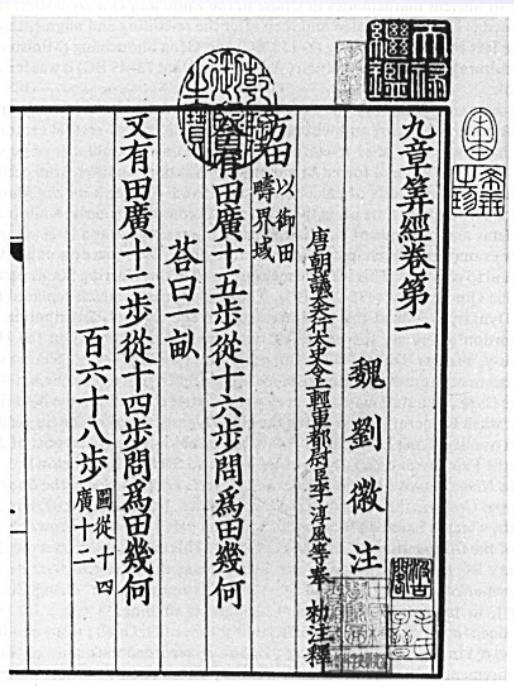 天祿繼鑑
乾隆御覽之寶
宋本
希世之珍
九章筭經卷第一
魏劉徽注
唐朝議大夫行太史令上輕車都尉臣李淳風等奉 勑注釋
方田
以御田
疇界域
今有田廣十五步從十六步問爲田幾何
荅曰一畝
又有田廣十二步從十四步問爲田幾何
百六十八步
圖從十四
廣十二